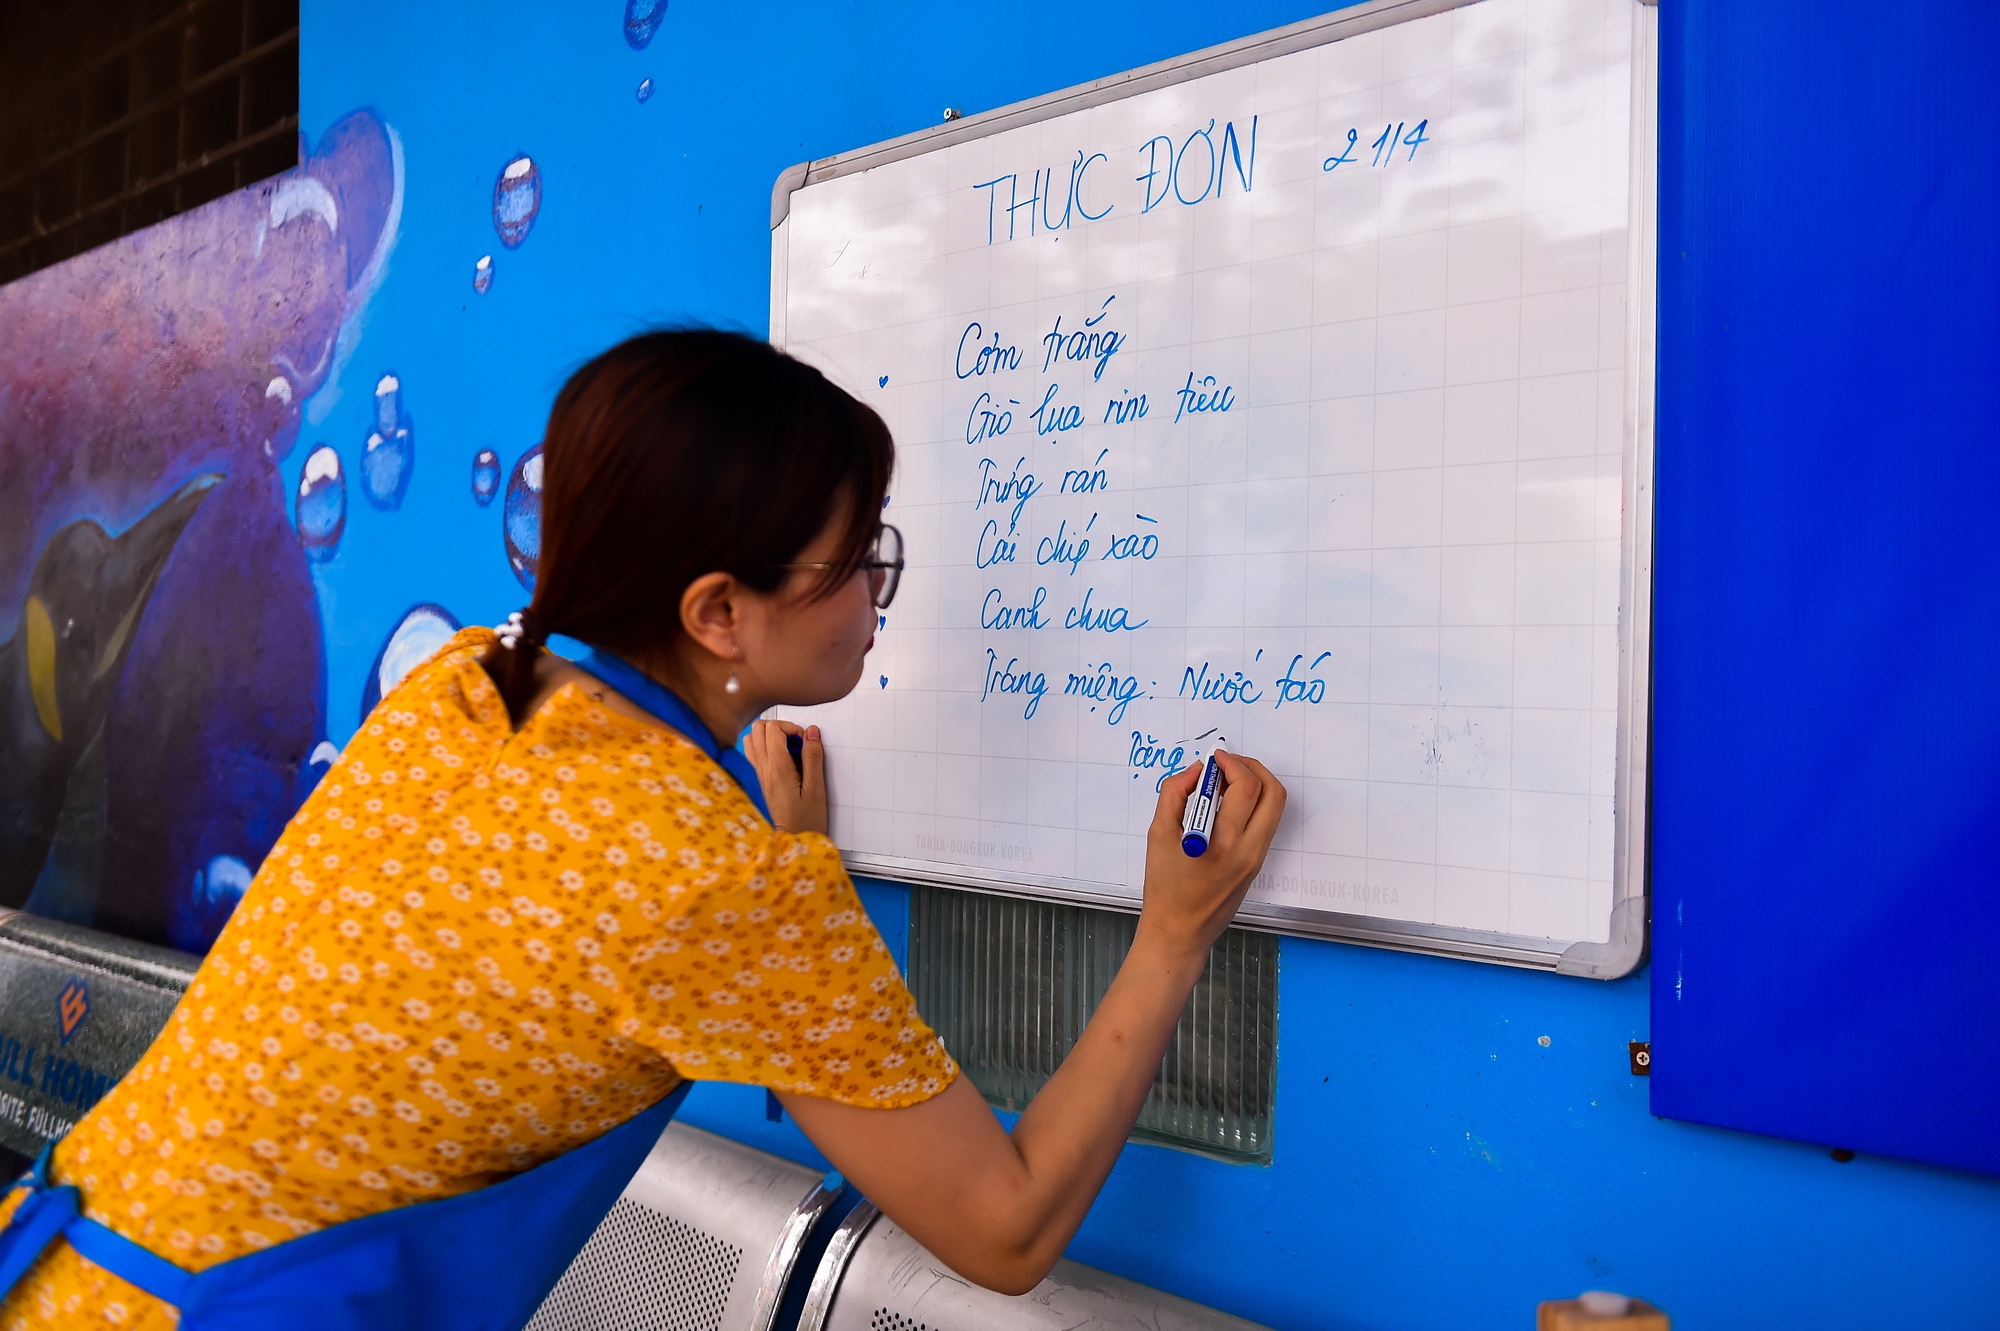 THỰC ĐƠN 21/4
Cơm trắng
Giò lụa rim tiêu
Trứng rán
Cải chíp xào
Canh chua
Tráng miệng: Nước táo
Tặng:
TANHA-DONGKUK-KOREA
HA-DONGKUK-KOREA
ULL HOM
SITE: FULLHO